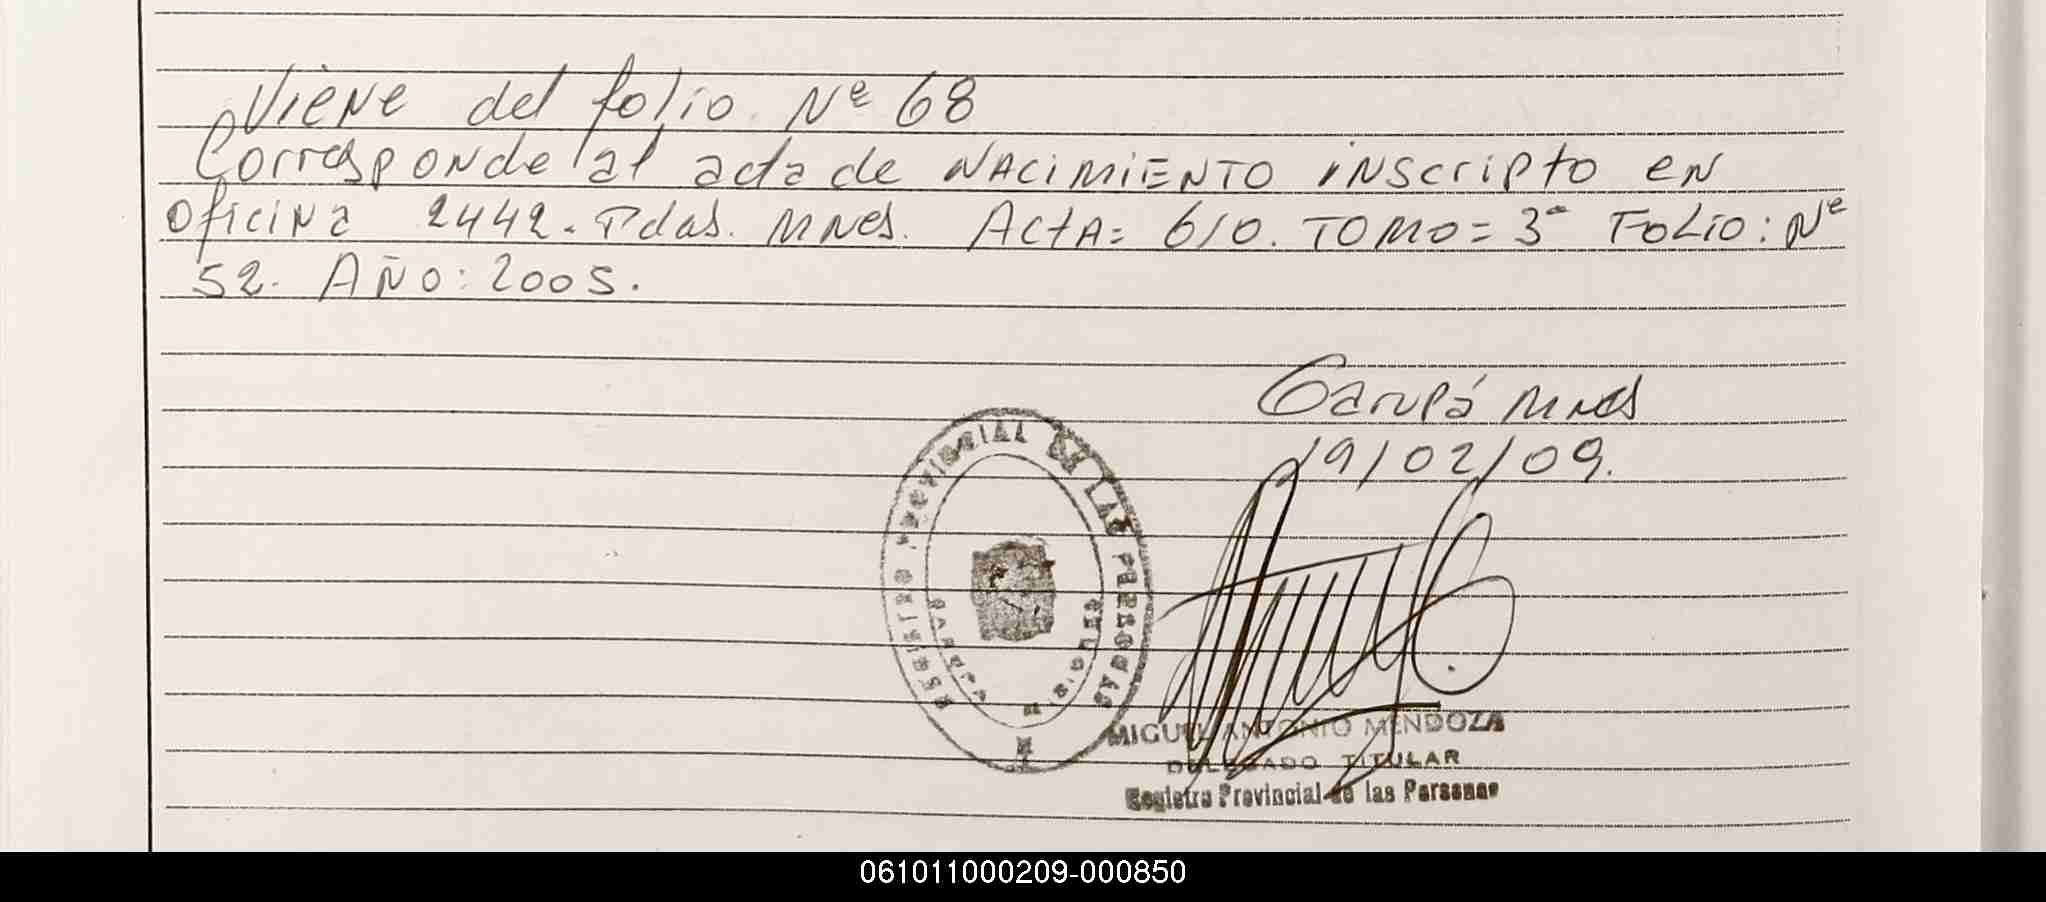 Viene del folio Nº 68
Corresponde al acta de NACIMIENTO INSCRIPTO EN
OFICINA 2442. Pdas. MNES. ActA= 610. TOMO= 3º FOLIO: Nº
52. AÑO: 2005.
Garupá MNES
19/02/09.
REGISTRO PROVINCIAL DE LAS PERSONAS
MIGUEL ANTONIO MENDOZA
DELEGADO TITULAR
Registro Provincial de las Personas
061011000209-000850